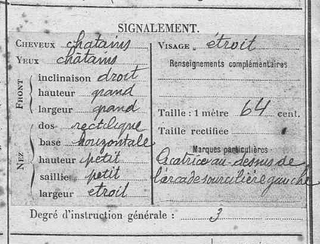 SIGNALEMENT.
CHEVEUX châtains
YEUX châtains
FRONT
inclinaison droit
hauteur grand
largeur grand
NEZ
dos rectiligne
base horizontale
hauteur petit
saillie petit
largeur étroit
VISAGE étroit
Renseignements complémentaires
Taille : 1 mètre 64 cent.
Taille rectifiée
Marques particulières
Cicatrice au-dessus de
l'arcade sourcilière gauche
Degré d'instruction générale : 3